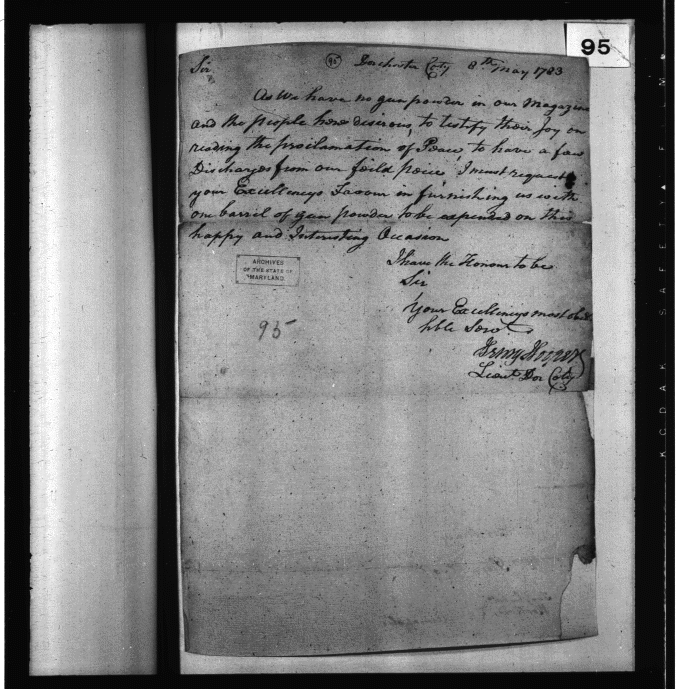 95
Sir
95 Dorchester Coty 8th May 1783
As We have no gun powder in our Magazine
and the people here desirous, to testify their Joy on
reading the proclamation of Peace, to have a few
Discharges from our feild peice, I must request
your Excellencys Favour in furnishing us with
one barril of gun powder to be expended on this
happy and Interesting Occasion
I have the Honour to be
Sir
Your Excellencys most obdt
hble Servt
Lieut Dor Coty
ARCHIVES
OF THE STATE OF
MARYLAND
95
KODAK SAFETY FILM